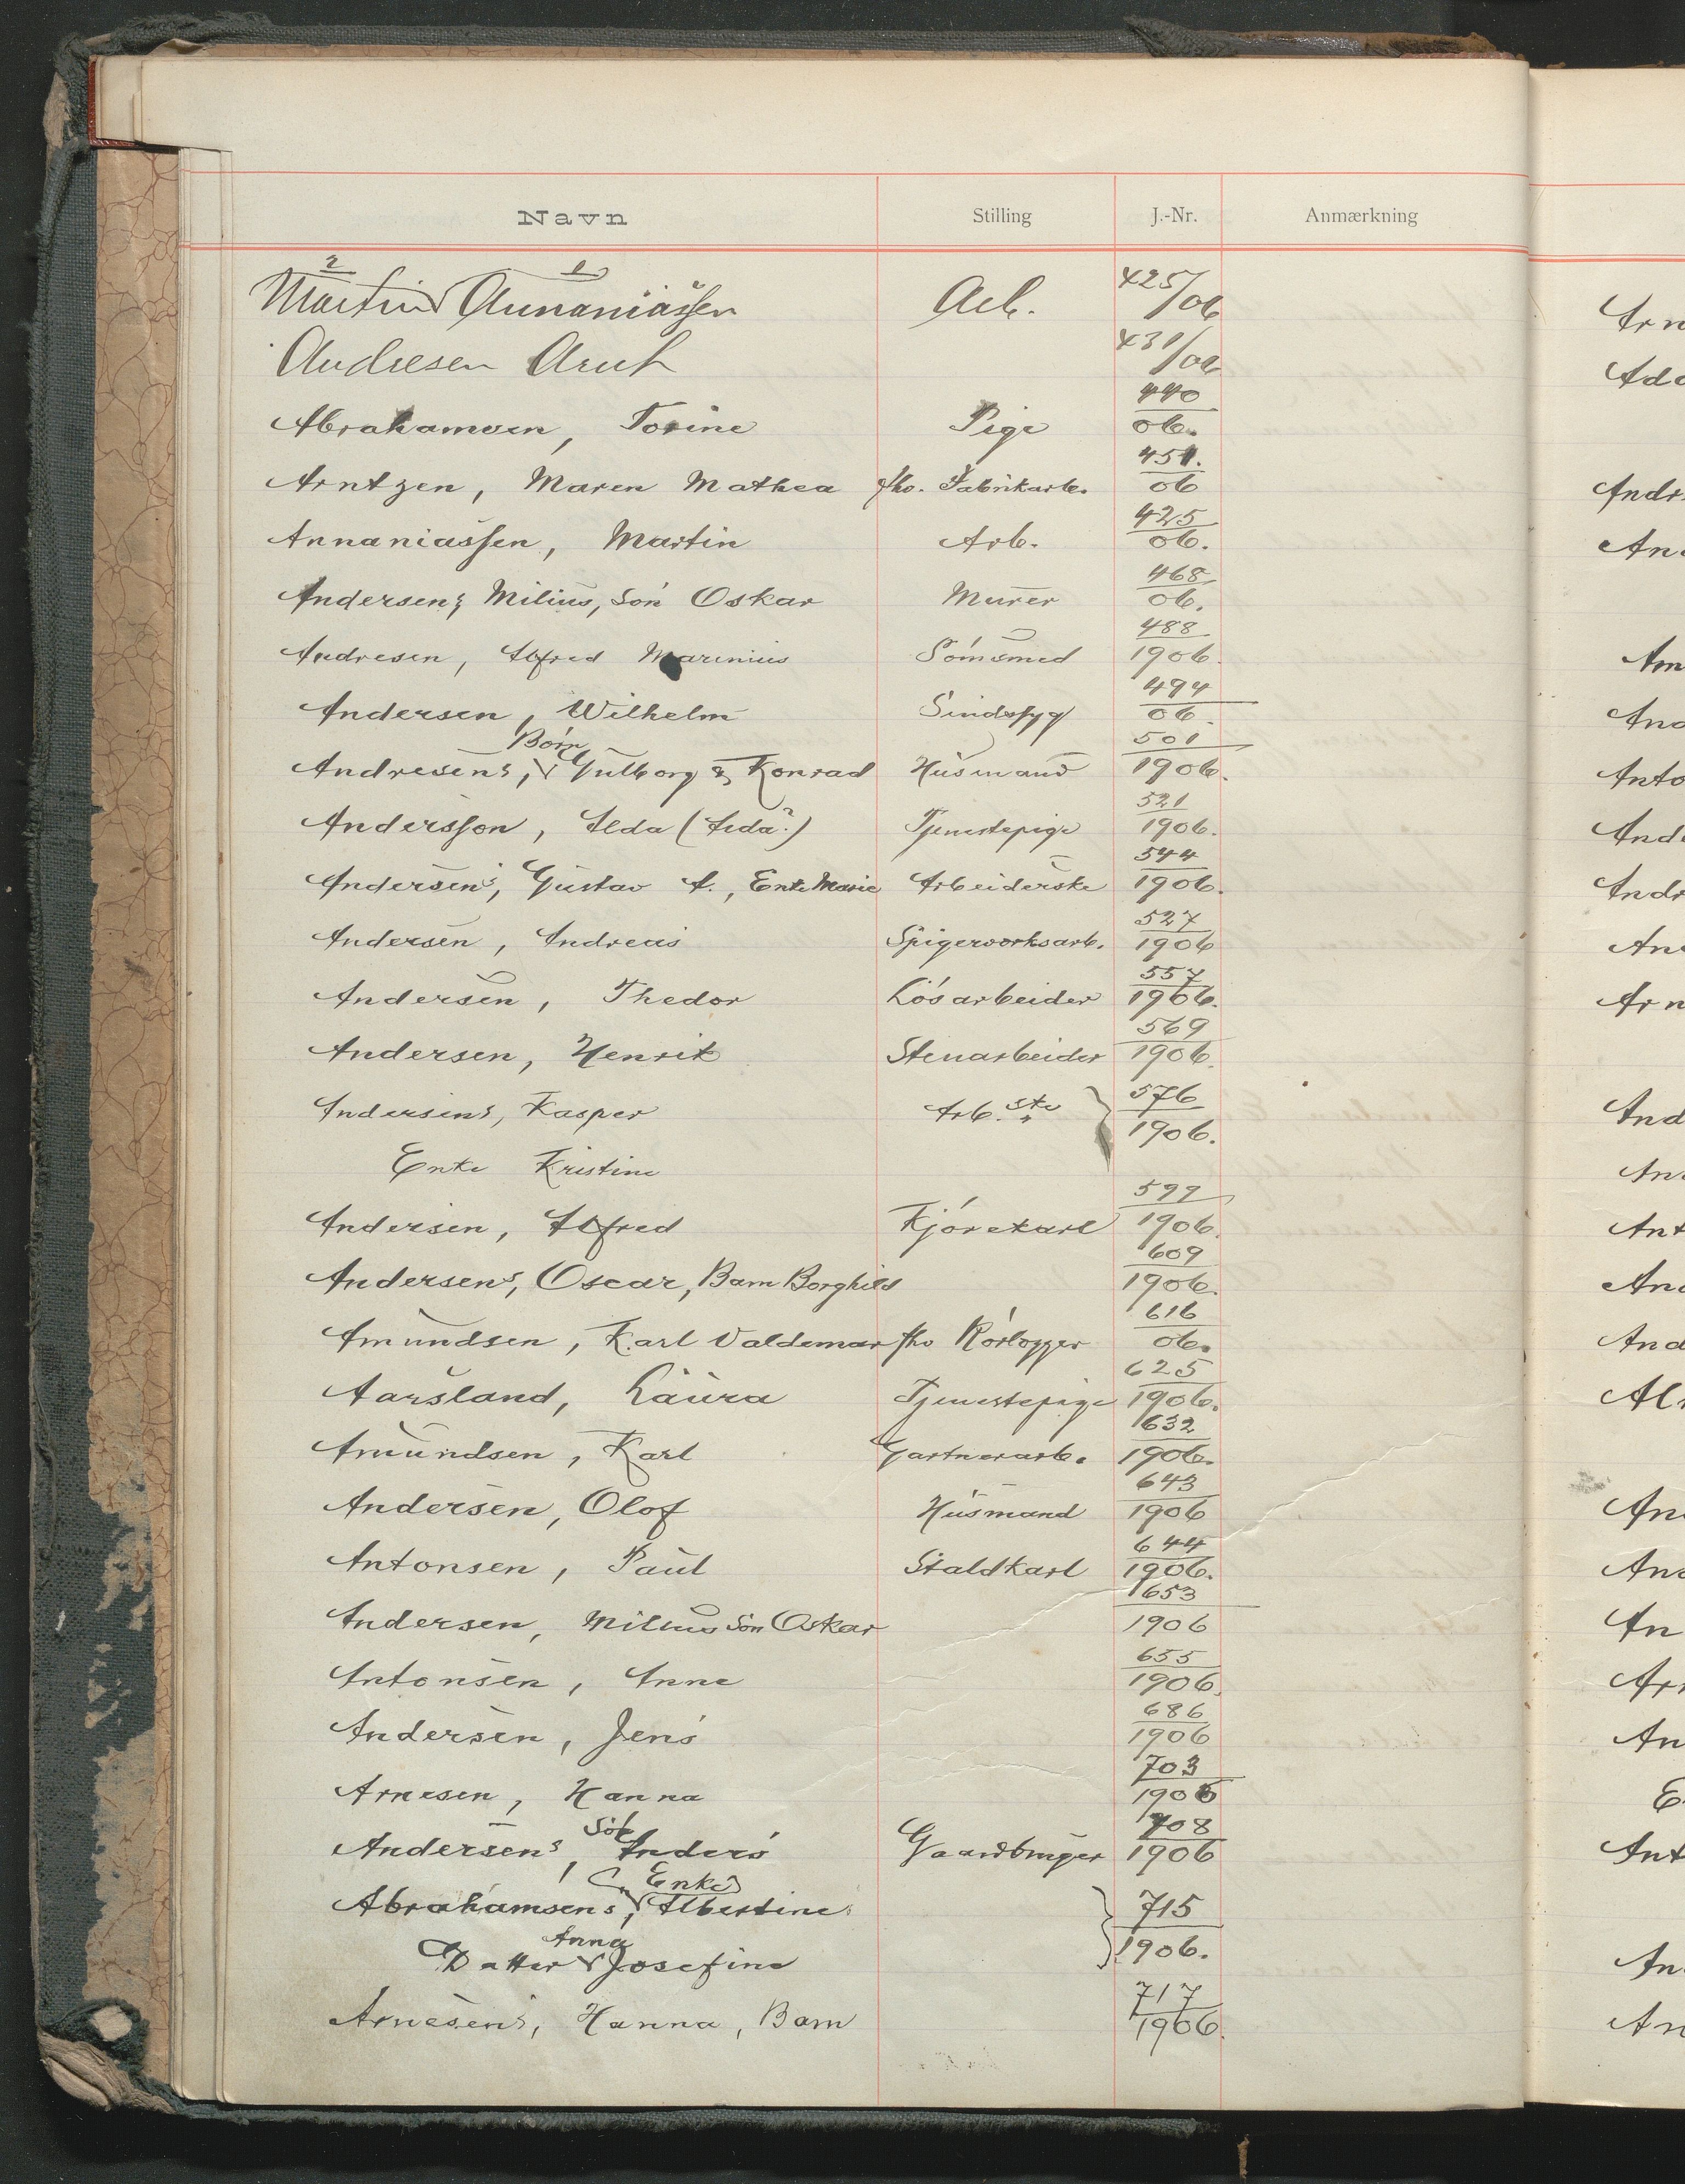 Navn Stilling J.-Nr. Anmærkning
2 1
Martin Annaniassen Arb. 425/06
Andresen 431/06
Abrahamsen, Torine Pige 440/06.
Arntzen, Maren Mathea fho. Fabrikarb. 451./06
Annaniassen, Martin Arb. 425/06.
Andersens, Milius, Søn Oskar Murer 468/06.
Andresen, Alfred Marenius Sömsmed 488/1906.
Andersen, Wilhelm Sindssyg 494/06.
Börn
Andresens, Gulborg & Konrad Husmand 501/1906.
Andersson, Alda (Aida?) Tjenestepige 521/1906.
Andersens, Gustav A., Enke Marie Arbeiderske 544/1906.
Andersen, Andreas Spigerverksarb. 527/1906
Andersen, Thedor Lösarbeider 557/1906.
Andersen, Henrik Stenarbeider 569/1906.
Andersens, Kasper Arb.ske 576/1906.
Enke Kristine
Andersen, Alfred Kjörekarl 599/1906.
Andersens, Oscar, Barn Borghild 609/1906.
Amundsen, Karl Valdemar fho Rörlegger 616/06.
Aarsland, Laura Tjenestepige 625/1906.
Amundsen, Karl Gartnerarb. 632/1906.
Andersen, Olof Husmand 643/1906
Antonsen, Paul Staldkarl 644/1906.
Andersen, Milius Søn Oskar 653/1906
Antonsen, Anne 655/1906.
Andersen, Jens 686/1906
Arnesen, Hanna 703/1906
Andersens, Anders Gaardbruger 708/1906
Enke
Abrahamsens, Albertine 715/1906.
Anna
Datter Josefine
Arnesens, Hanna, Barn 717/1906.